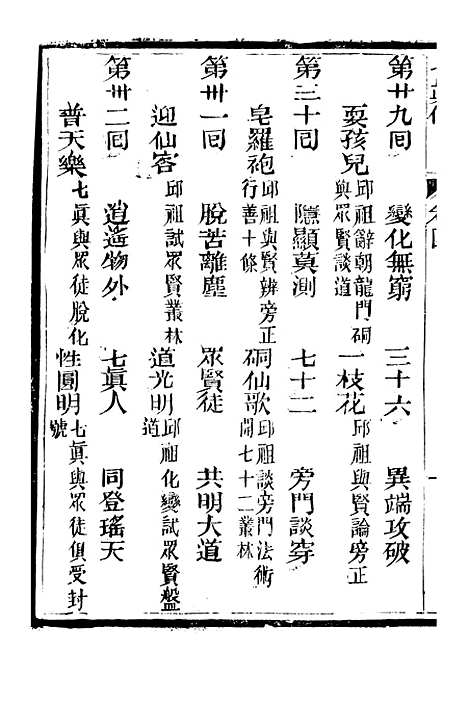 第廿九回　變化無窮　三十六　異端攻破
耍孩兒　邱祖辭朝龍門硐與眾賢談道　一枝花　邱祖與賢論旁正
第三十回　隱顯莫測　七十二　旁門談穿
皂羅袍　邱祖與賢辨旁正行善十條　硐仙歌　邱祖談旁門法術開七十二叢林
第卅一回　脫苦離塵　眾賢徒　共明大道
迎仙客　邱祖試眾賢叢林　道光明　邱祖化變試眾賢盤道
第卅二回　逍遙物外　七眞人　同登瑤天
普天樂　七眞與眾徒脫化　性圓明　七眞與眾徒俱受封號